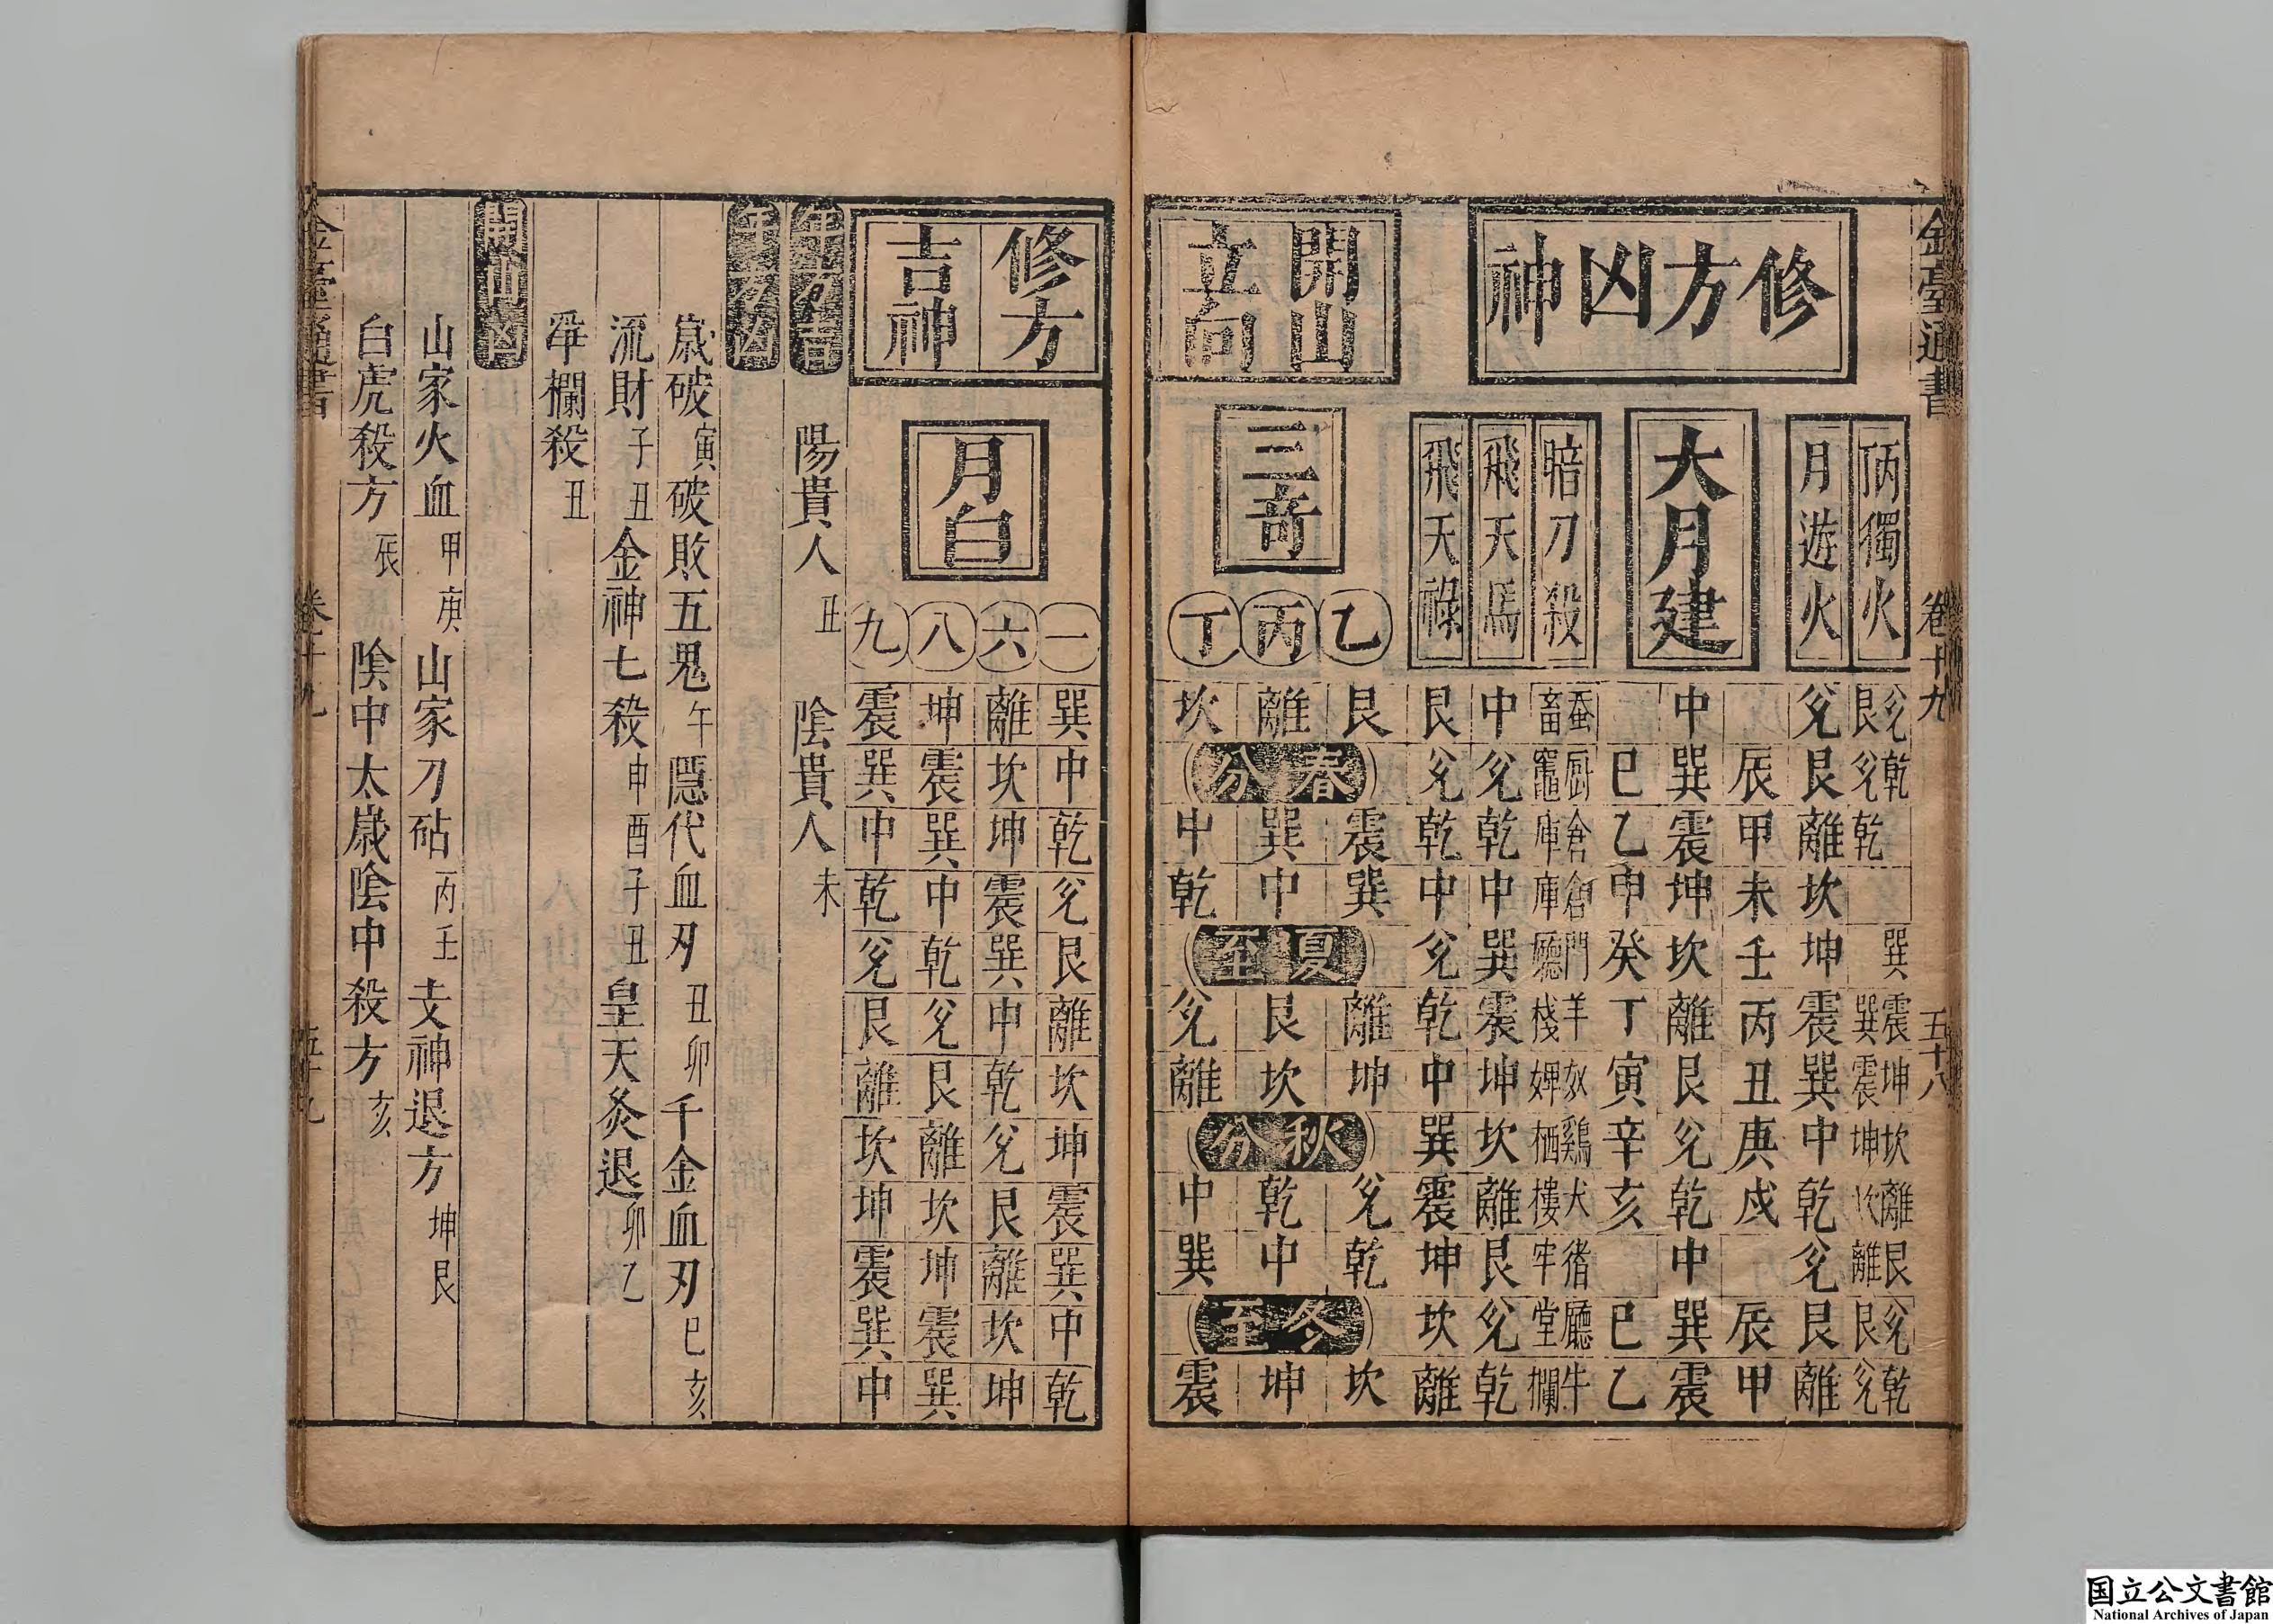 金臺通書 卷十九 五十八
修方凶神
丙獨火 兊艮 乾兊 乾 巽 震巽 坤震 坎坤 離坎 艮離 兊艮 乾兊
月遊火 兊 艮 離 坎 坤 震 巽 中 乾 兊 艮 離
大月建
辰 甲 未 壬 丙 丑 庚 戍 辰 甲
中 巽 震 坤 坎 離 艮 兊 乾 中 巽 震
巳 乙 申 癸 丁 寅 辛 亥 巳 乙
暗刀殺 蚕畜 厨竈 倉庫 倉庫 門廳 羊棧 奴婢 鷄栖 犬樓 猪牢 廳堂 牛欄
飛天馬 中 兊 乾 中 巽 震 坤 坎 離 艮 兊 乾
飛天祿 艮 兊 乾 中 兊 乾 中 巽 震 坤 坎 離
開山立向
三奇
春分 夏至 秋分 冬至
乙 艮 震 巽 離 坤 兊 乾 坎
丙 離 巽 中 艮 坎 乾 中 坤
丁 坎 中 乾 兊 離 中 巽 震
修方吉神
月白
一 巽 中 乾 兊 艮 離 坎 坤 震 巽 中 乾
六 離 坎 坤 震 巽 中 乾 兊 艮 離 坎 坤
八 坤 震 巽 中 乾 兊 艮 離 坎 坤 震 巽
九 震 巽 中 乾 兊 艮 離 坎 坤 震 巽 中
陽貴人 丑 陰貴人 未
歲破 寅 破敗五鬼 午 隱伏血刃 丑卯 千金血刃 巳亥
流財 子丑 金神七殺 申酉子丑 皇天灸退 卯乙
牢欄殺 丑
山家火血 甲庚 山家刀砧 丙壬 支神退方 坤艮
白虎殺方 辰 陰中太歲陰中殺方 亥
金臺通書 卷十九 五十九
国立公文書館
National Archives of Japan